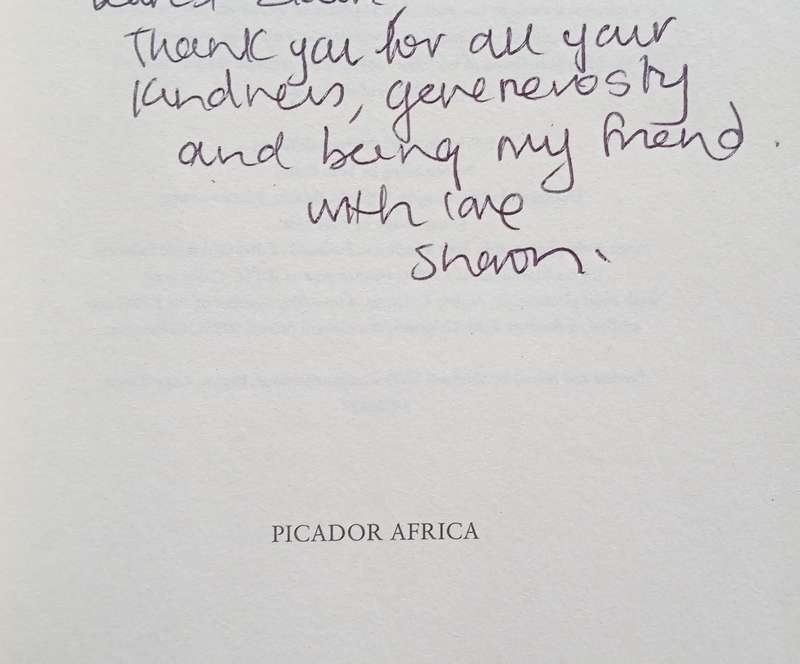 Thank you for all your
kindness, generenerosty
and being my friend.
with love
Sharon.
PICADOR AFRICA